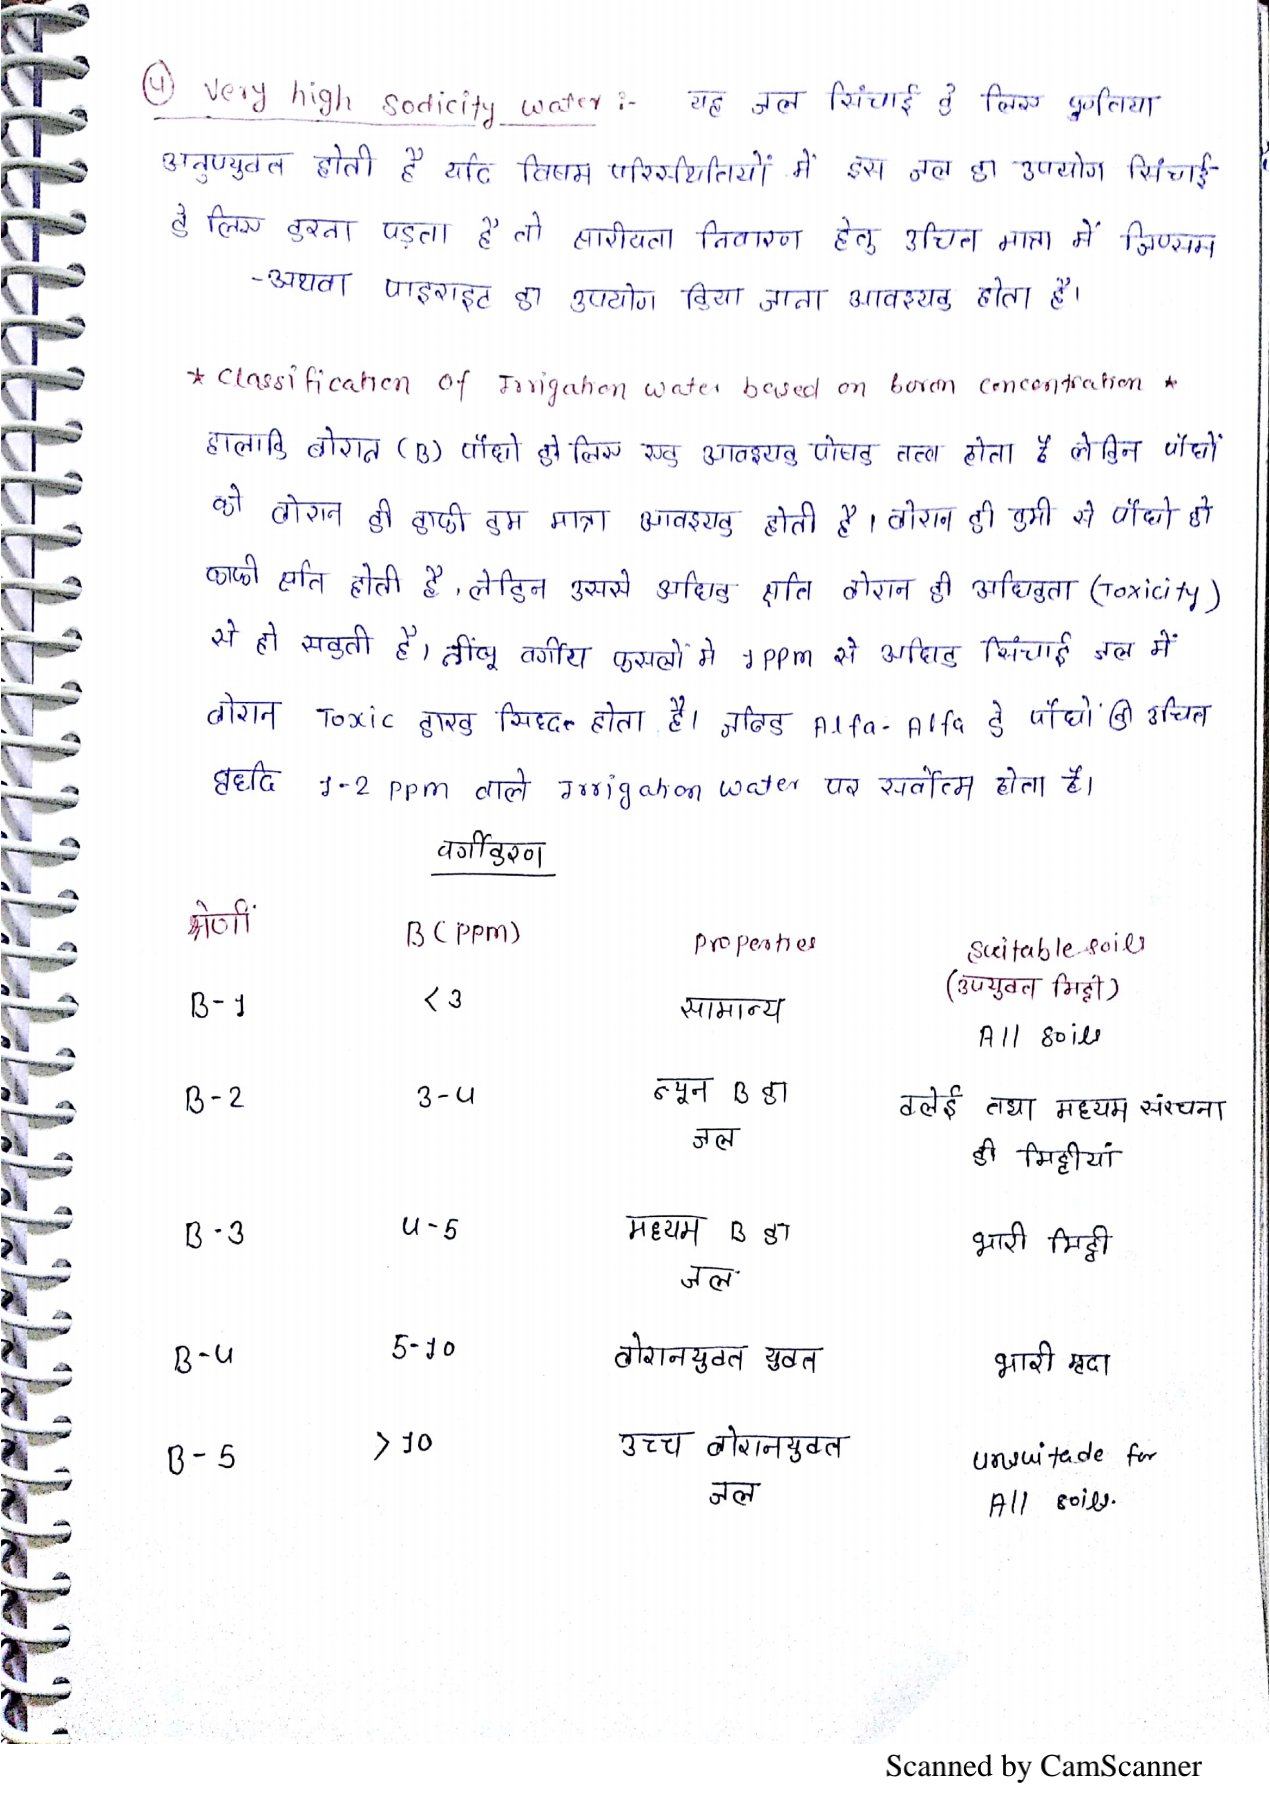 ④ Very high sodicity water :- यह जल सिंचाई के लिए पूर्णतया
अनुपयुक्त होती है यदि विषम परिस्थितियों में इस जल का उपयोग सिंचाई-
के लिए करना पड़ता है तो क्षारीयता निवारण हेतु उचित मात्रा में जिप्सम
-अथवा पाइराइट का उपयोग किया जाना आवश्यक होता है।
* Classification of Irrigation water based on boron concentration *
हालाकि बोरान (B) पौंधो के लिए एक आवश्यक पोषक तत्व होता है लेकिन पौंधों
को बोरान की काफी कम मात्रा आवश्यक होती है। बोरान की कमी से पौंधो को
काफी क्षति होती है, लेकिन उससे अधिक क्षति बोरान की अधिकता (Toxicity)
से हो सकती है। नींबू वर्गीय फसलों मे 1 PPm से अधिक सिंचाई जल में
बोरान Toxic कारक सिध्द होता है। जबकि Alfa-Alfa के पौंधों की उचित
बृध्दि 1-2 PPm वाले Irrigation water पर सर्वोत्म होता है।
वर्गीकरण
श्रेणीं B (PPm) Properties Suitable soils
(उपयुक्त मिट्टी)
B-1 < 3 सामान्य All soils
B-2 3-4 न्यून B का बलेई तथा मध्यम संरचना
जल की मिट्टीयां
B-3 4-5 मध्यम B का भारी मिट्टी
जल
B-4 5-10 बोरानयुक्त युक्त भारी मृदा
B-5 > 10 उच्च बोरानयुक्त unsuitade for
जल All soils.
Scanned by CamScanner